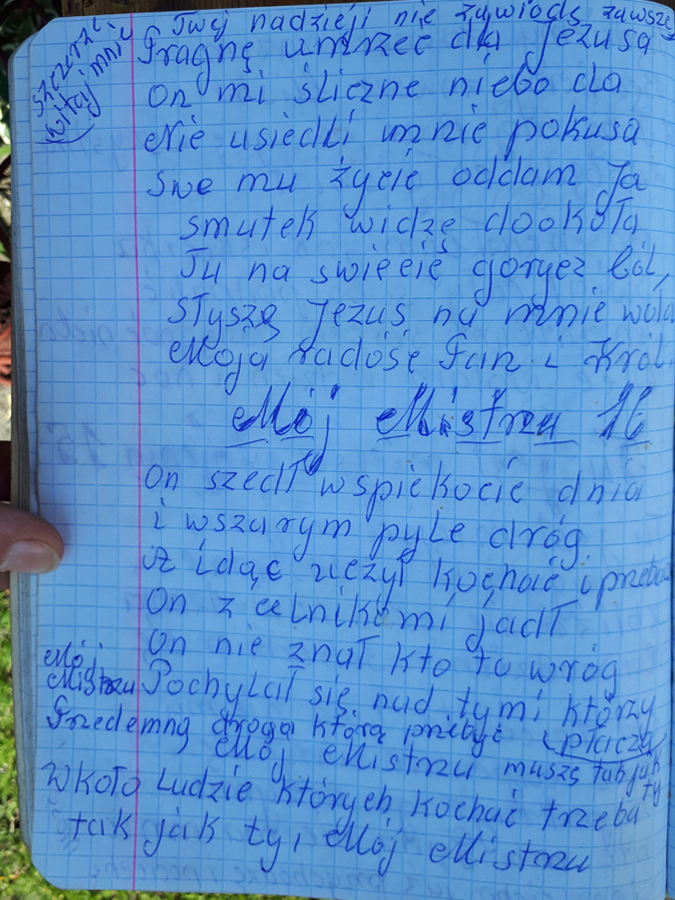 Twej nadzieji nie zawiodę zawsze
szczerze
witaj mnie
Pragnę umrzeć dla Jezusa
On mi śliczne niebo da
Nie usiedli mnie pokusa
Swe mu życie oddam Ja
smutek widzę dookoła
Tu na świecie gorycz ból,
słyszę Jezus na mnie woła
Moja radość Pan i Król.
Mój Mistrzu 16
On szedł w spiekocie dnia
i wszarym pyle dróg
A idąc uczył kochać i przeba
On z celnikomi jadł
On nie znał kto to wróg
Mój
Mistrzu Pochylał się nad tymi którzy
płaczą
Przedemną droga którą przebyć
Mój Mistrzu muszę tak jak
ty
Wkoło Ludzie których kochać trzeba
tak jak ty, Mój Mistrzu